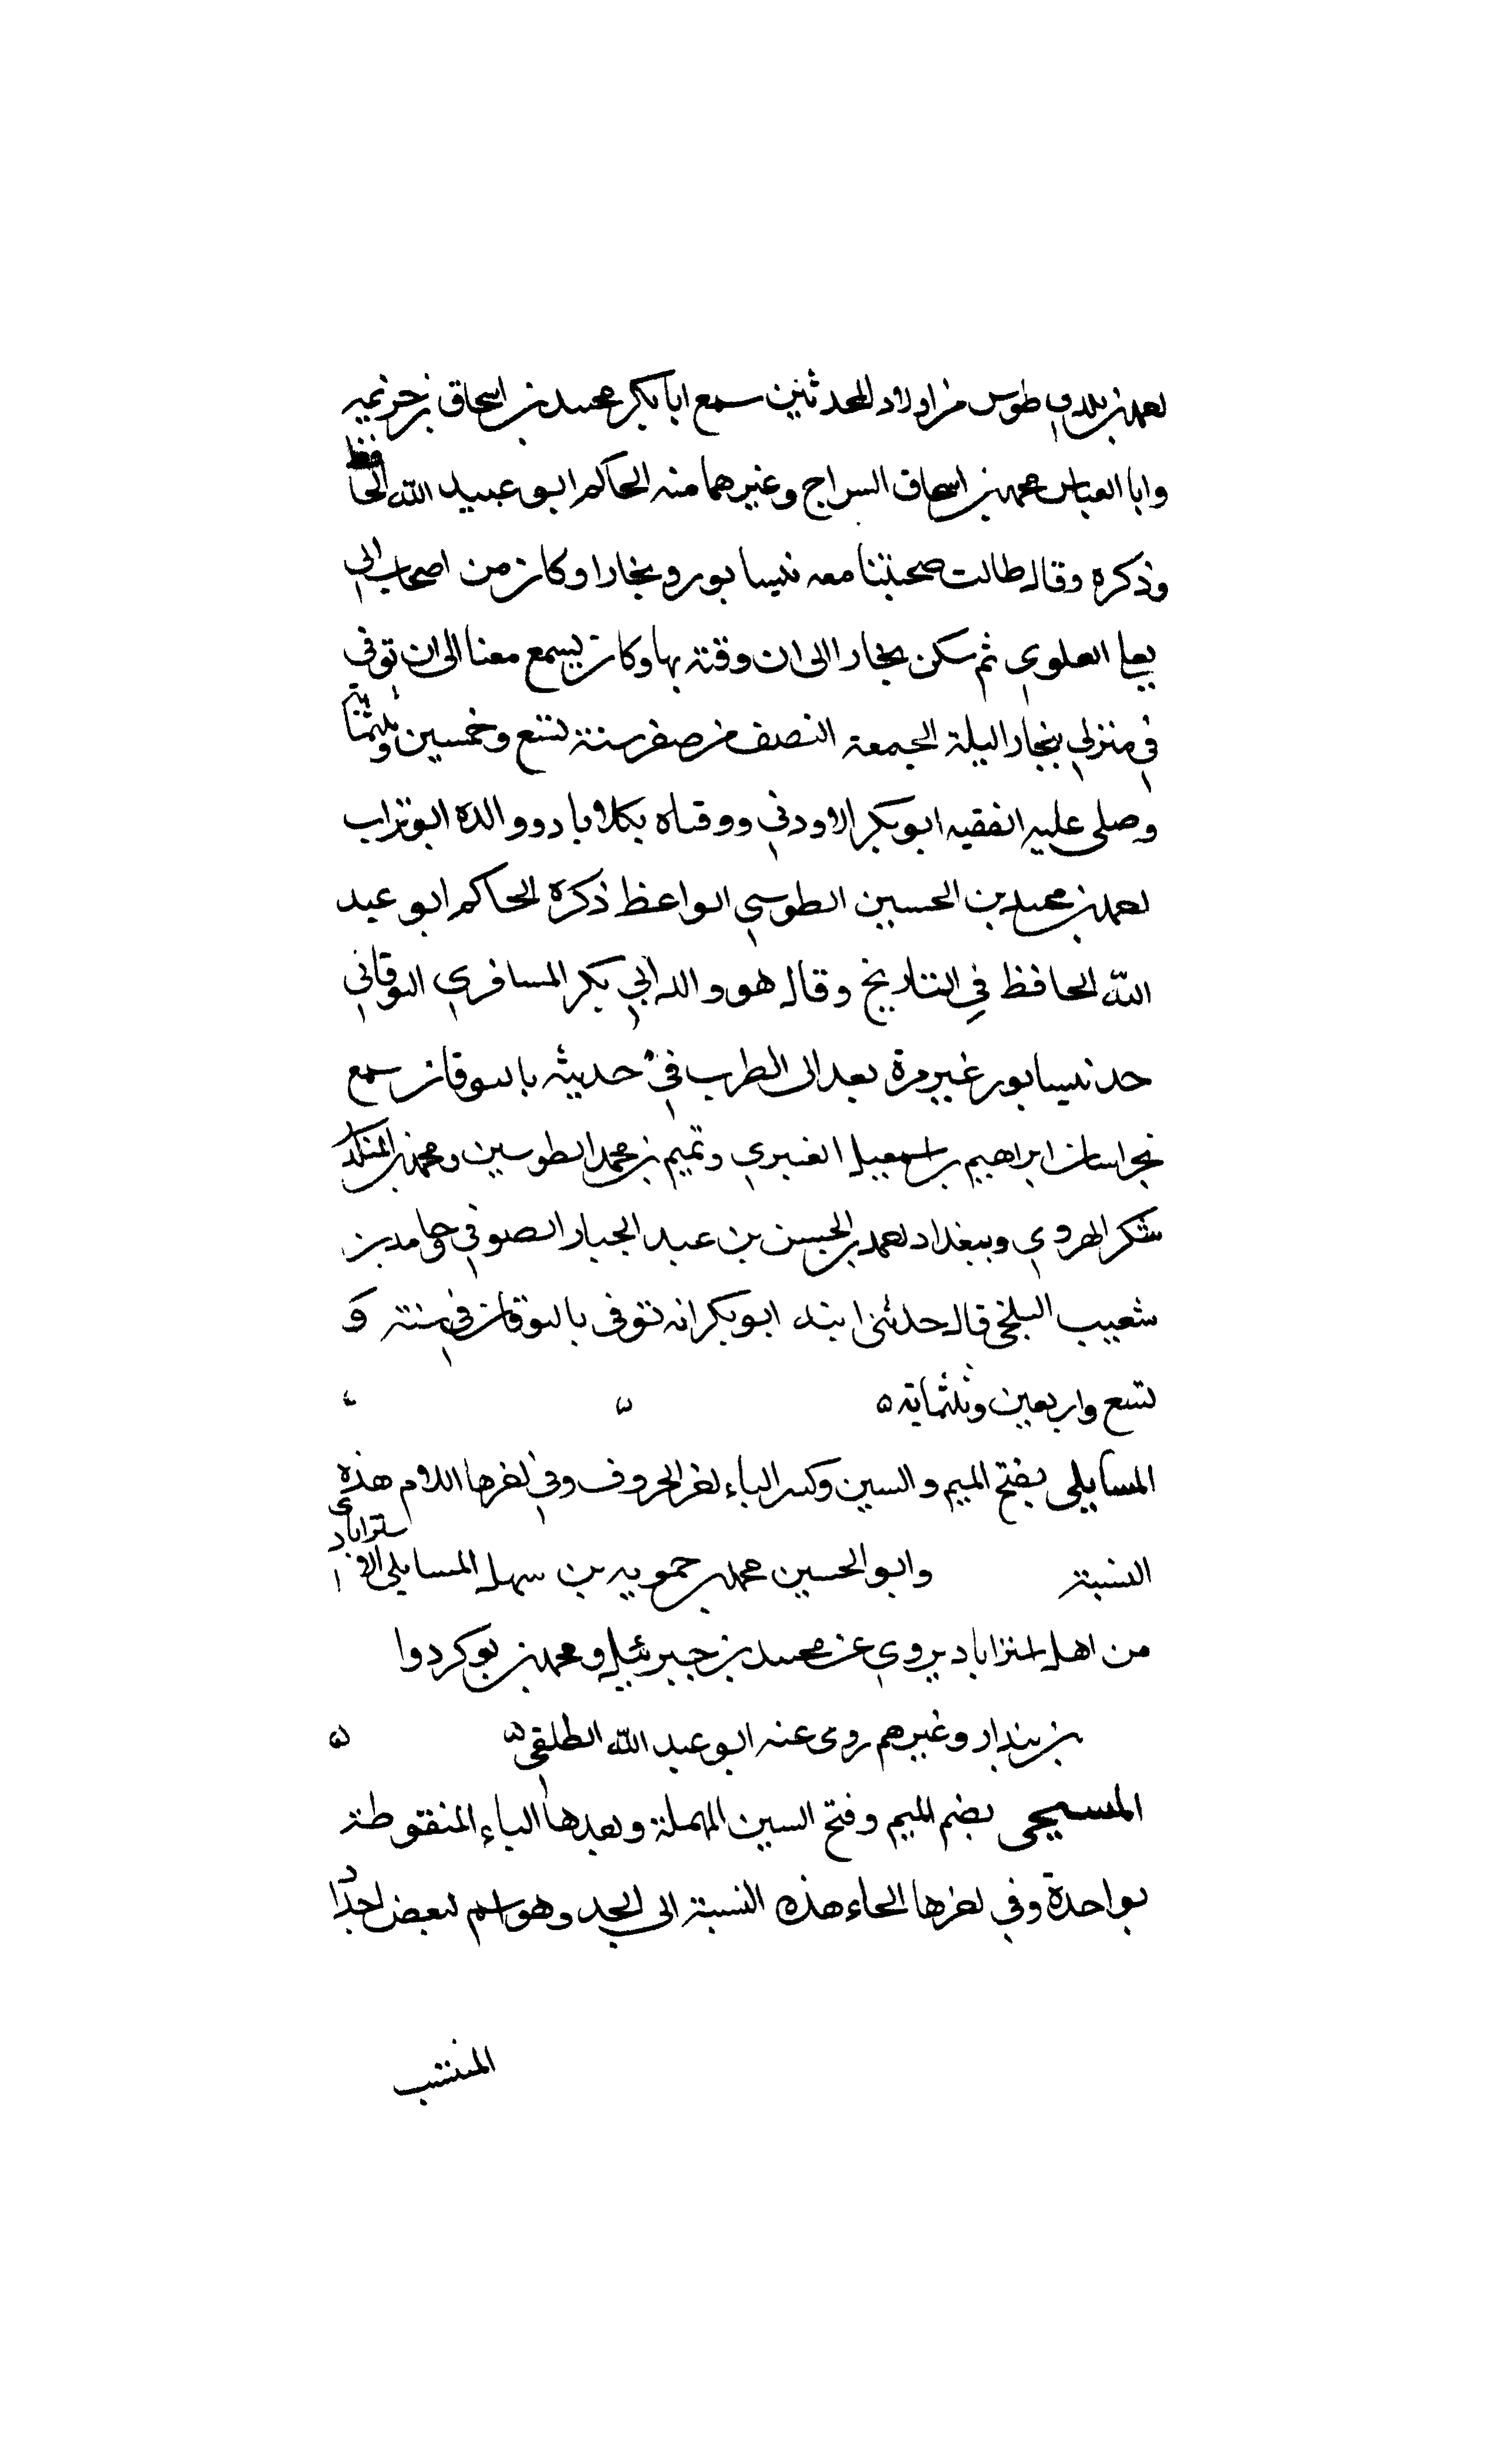 احمد بن بلدي طوس من اولاد المحدثين سمع ابا بكر محمد بن اسحاق بن خزيمه
وابا العباس محمد بن اسحاق السراج وغيرهما منه الحاكم ابو عبيد الله الحافظ
وذكره وقال طالت صحبتنا معه نيسابور وبخارا وكان من اصحاب ابي
يعلي العلوي ثم سكن بخارا الى ان وقته بها وكان يسمع معنا الى ان توفي
في منزلي ببخارا ليلة الجمعة النصف من صفر سنة تسع وخمسين وثلثمائة
وصلى عليه الفقيه ابو بكر الاودني ووقتاه بكلاوبادو والده ابو تراب
احمد بن محمد بن الحسين الطوسي الواعظ ذكره الحاكم ابو عبد
الله الحافظ في التاريخ وقال هو والد ابي بكر المسافري النوقاني
حد نيسابور غير مرة بعد الى الطرب في حديثه بالنوقان سمع
بخراسان ابراهيم بن اسمعيل العنبري وتميم بن محمد الطوسين ومحمد بن المنكدر
شكر الهروي وببغداد احمد بن الحسن بن عبد الجبار الصوفي وحامد بن
شعيب البلخي قال حدثني ابنه ابو بكر انه توفى بالنوقان في سنة و
تسع واربعين وثلثماية ه
المسايلي بفتح الميم والسين وكسر الياء اخر الحروف وفي اخرها اللام هذه
النسبة وابو الحسين محمد بن حمويه بن سهل المسايلي الاستراباذي
من اهل استراباد يروي عن محمد بن جبرئيل ومحمد بن بوكردوا
بن بندار وغيرهم روى عنه ابو عبد الله الطلقي ه ه
المسبحى بضم الميم وفتح السين المهملة وبعدها الباء المنقوطة
بواحدة وفي اخرها الحاء هذه النسبة الى الجد وهو اسم لبعض اجداد
المنتسب